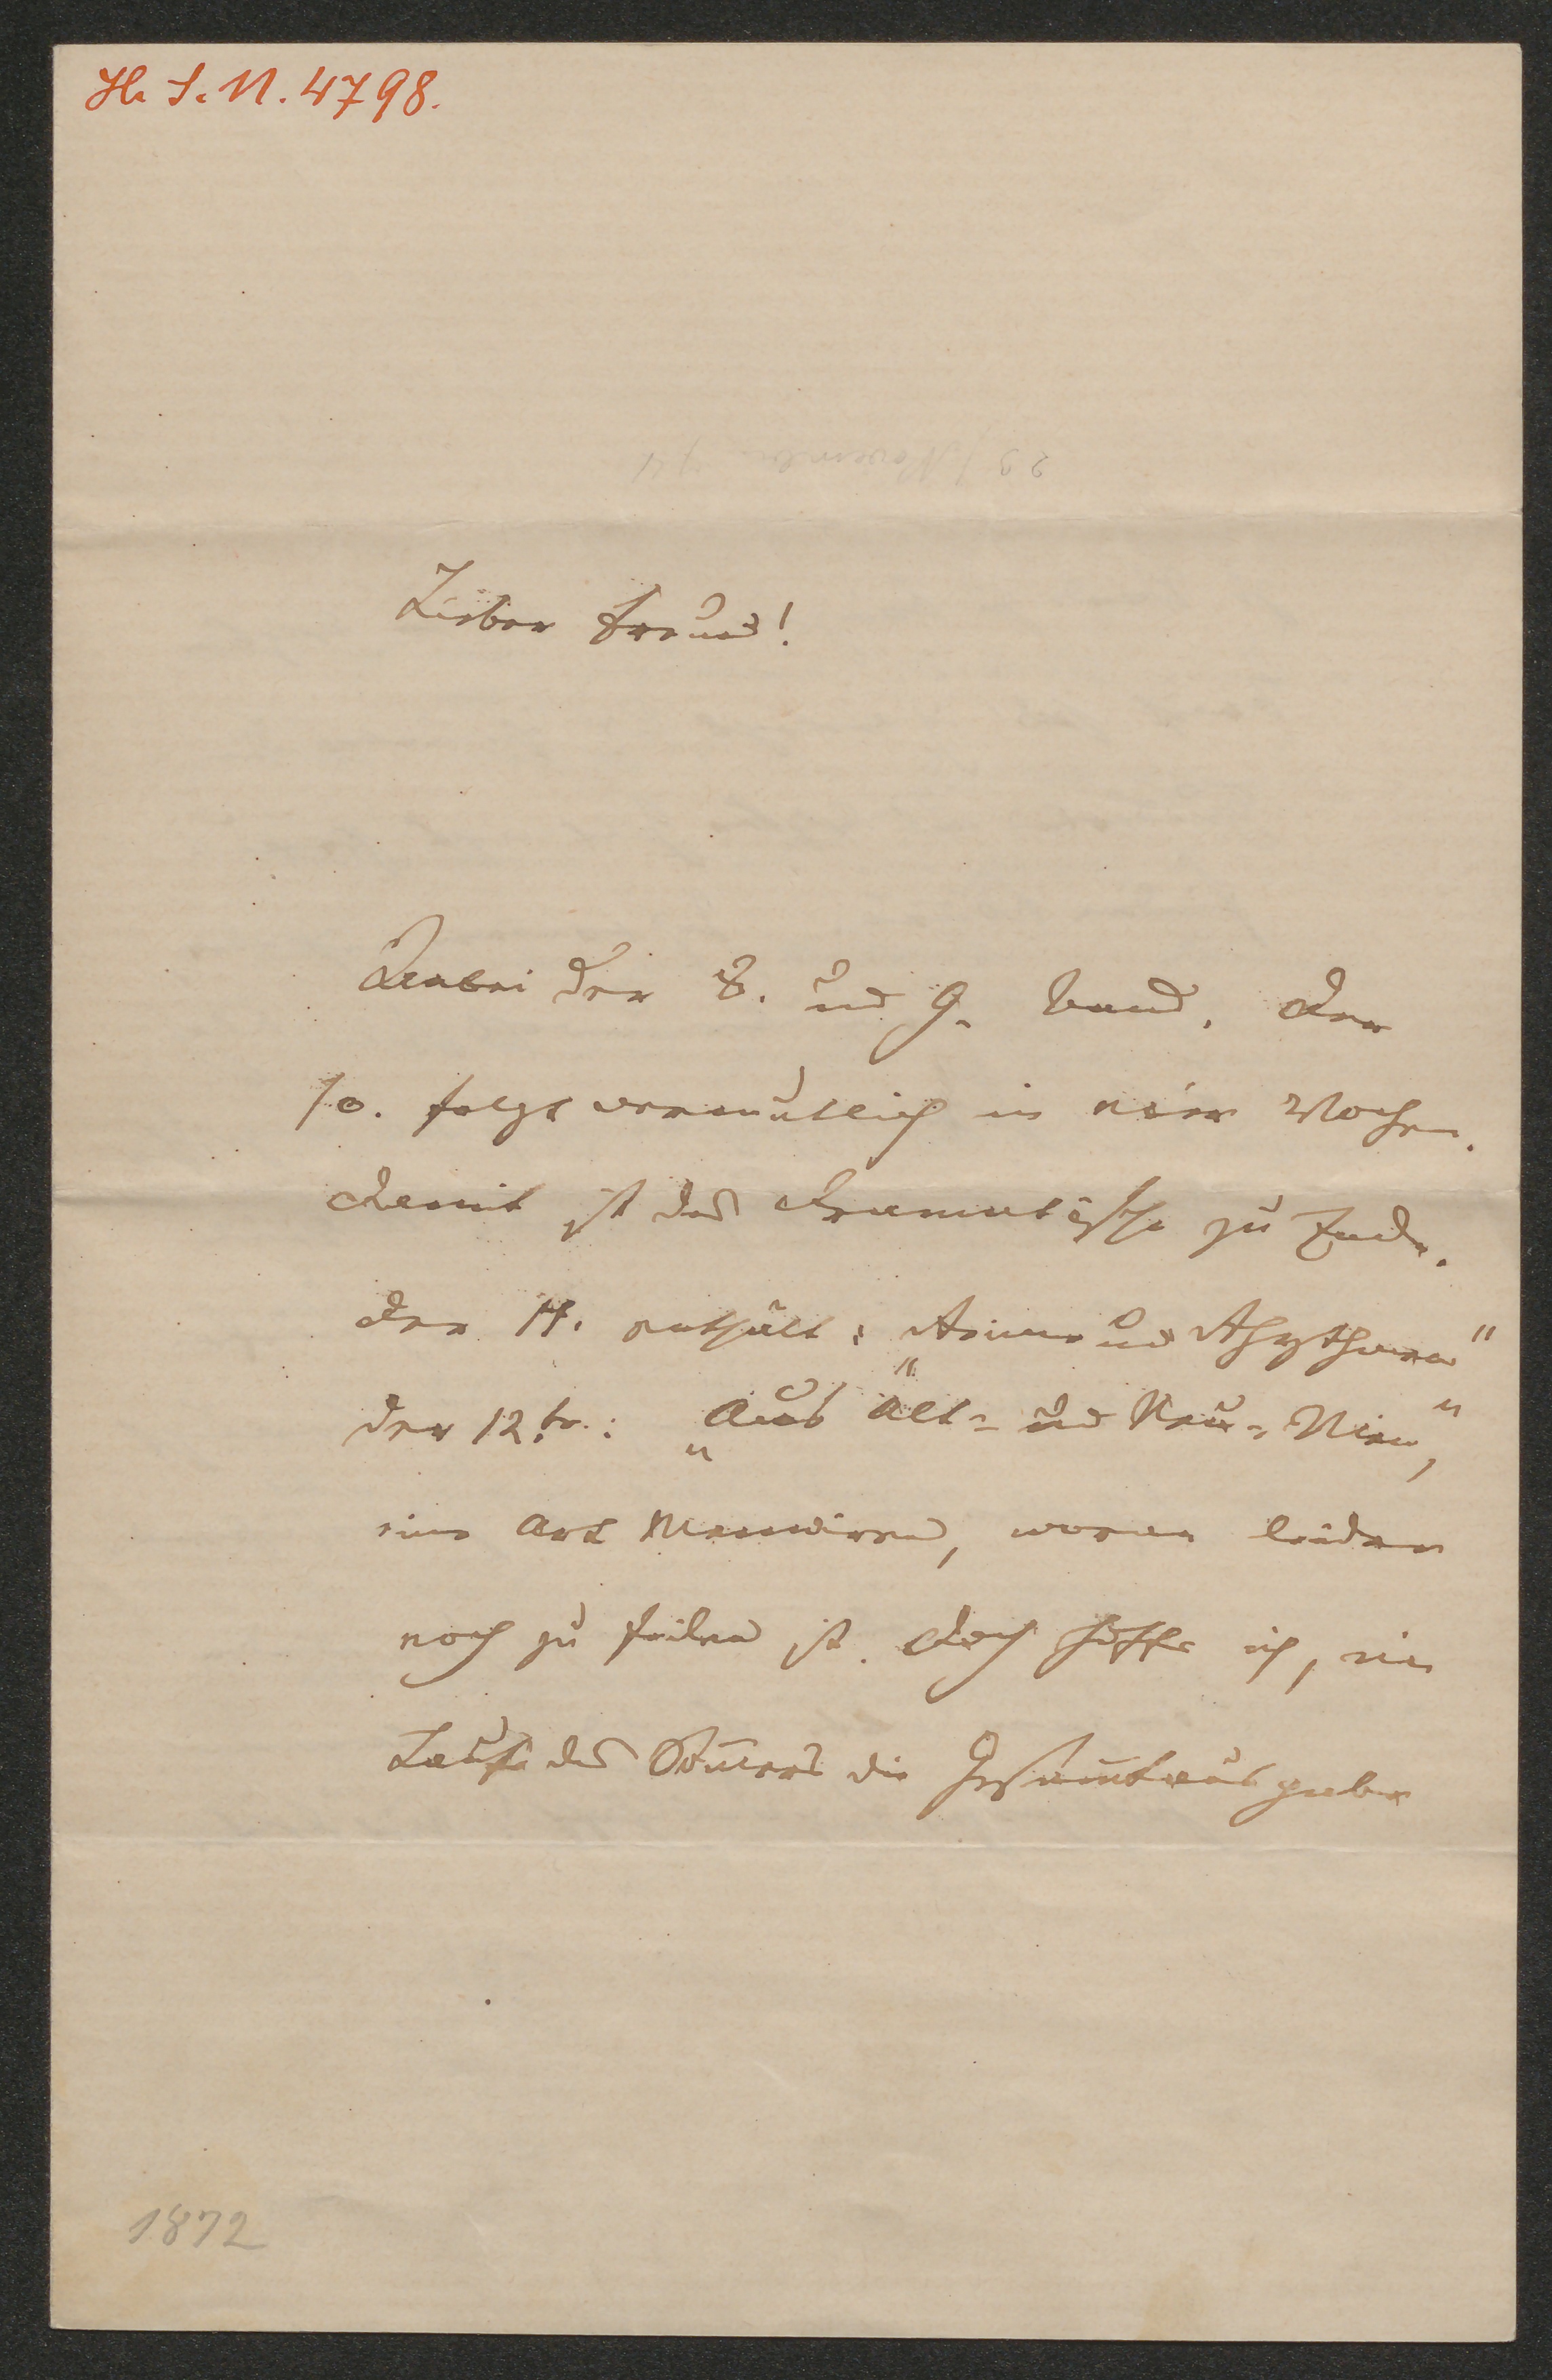 H. I. N. 4798.
Lieber Freund!
Anbei der 8. und 9. Band. Der
10. folgt vermutlich in vier Wochen.
Damit ist das Dramatische zu Ende.
Der 11. enthält: „Reime und Rhythmen"
der 12te.: „Aus Alt- und Neu-Wien",
eine Art Memoiren, woran leider
noch zu feilen ist. Doch hoffe ich, im
Laufe des Som̄ers die Gesam̄tausgabe
1872